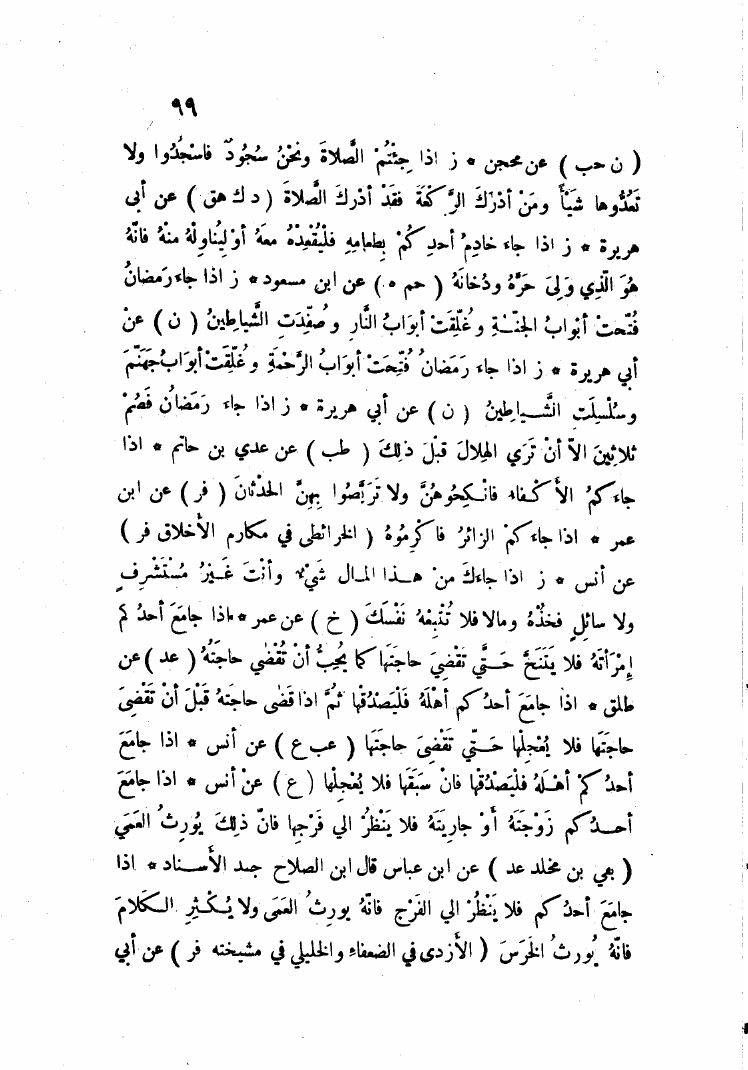 ٩٩
( ن حب ) عن محجن * ز اذا جِئْتُمْ الصَّلاةَ ونحْنُ سُجُودٌ فاسْجُدُوا ولا
تَعُدُّوها شَيْأً ومَنْ أدْرَكَ الرَّكْعَةَ فقَدْ أدْرَكَ الصَّلاةَ ( د ك هق ) عن أبى
هريرة * ز اذا جاءَ خادِمُ أحدِكُمْ بِطَعامِهِ فلْيُقْعِدْهُ معَهُ أوْ لِيُناوِلْهُ منْهُ فانَّهُ
هوَ الَّذِي وَلِىَ حَرَّهُ ودُخانَهُ ( حم ه ) عن ابن مسعود * ز اذا جاءَ رَمضانُ
فُتِّحَتْ أبْوابُ الجنَّةِ وغُلِّقَتْ أبْوابُ النَّارِ وصُفِّدَتِ الشَّياطِينُ ( ن ) عنْ
أبي هريرة * ز اذا جاءَ رَمَضانُ فُتِّحَتْ أبْوَابُ الرَّحْمَةِ وغُلِّقَتْ أبوَابُ جَهَنَّمَ
وسُلْسِلَتِ الشَّياطِينُ ( ن ) عن أبي هريرة * ز اذا جاءَ رَمَضانُ فَصُمْ
ثلاثِينَ الاَّ أنْ تَرَي الهِلالَ قبْلَ ذلِكَ ( طب ) عن عدي بن حاتم * اذا
جاءَ كمُ الأَ كْفاءُ فانْكِحُوهُنَّ ولا تَرَبَّصُوا بِهِنَّ الحَدْثانَ ( فر ) عن ابن
عمر * اذا جاءَ كمْ الزائرُ فاكْرِمُوهُ ( الخرائطى في مكارم الأخلاق فر )
عن أنس * ز اذا جاءَكَ منْ هذا المال شَيْءٌ وأنْتَ غَيْرُ مُسْتَشْرِفٍ
ولا سائلٍ فخذْهُ ومالا فلا تُتْبِعْهُ نَفْسَكَ ( خ ) عن عمر * اذا جامَعَ أحدُ كم
إمْرَأتَهُ فلا يَتَنَحَّ حَتَّي تَقْضِيَ حاجَتَها كما يُحِبُّ أنْ تُقْضٰي حاجَتُهُ ( عد ) عن
طلق * اذا جامَعَ أحدُ كم أهْلَهُ فَلْيَصْدُقْها ثُمَّ اذا قَضٰى حاجتَهُ قبْلَ أنْ تَقْضِىَ
حاجَتَها فلا يُعْجِلْها حَتّي تَقْضِىَ حاجَتَها ( عب ع ) عن أنس * اذا جامَعَ
أحدُ كمْ أهْلَهُ فلْيَصْدُقْها فانْ سبَقَها فلا يُعْجِلْها ( ع ) عنْ أنس * اذا جامَعَ
أحدُ كم زَوْجَتَهُ أوْ جاريَتَهُ فلا يَنْظُرْ الي فَرْجِها فانّ ذلِكَ يُورِثُ العَمَي
( بقي بن مخلد عد ) عن ابن عباس قال ابن الصلاح جيد الأسناد * اذا
جامَعَ أحدُ كم فلا يَنْظُرْ الي الفَرْجِ فانّهُ يورِثُ العَمَى ولا يُكْثِرِ الكَلامَ
فانَّهُ يُورثُ الخَرَسَ ( الأزدى في الضعفاءِ والخليلي في مشيخته فر ) عن أبي